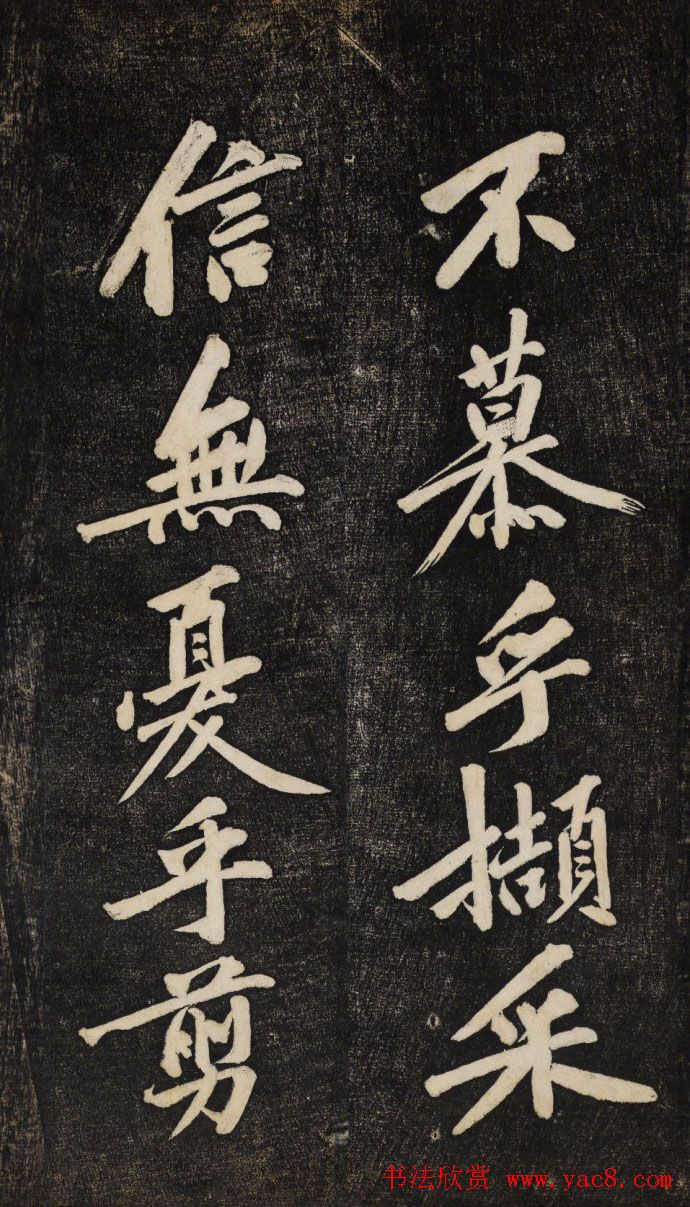 不慕乎擷采
信無憂乎剪
书法欣赏 www.yac8.com